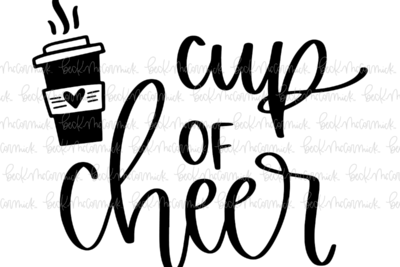 cup
OF
cheer